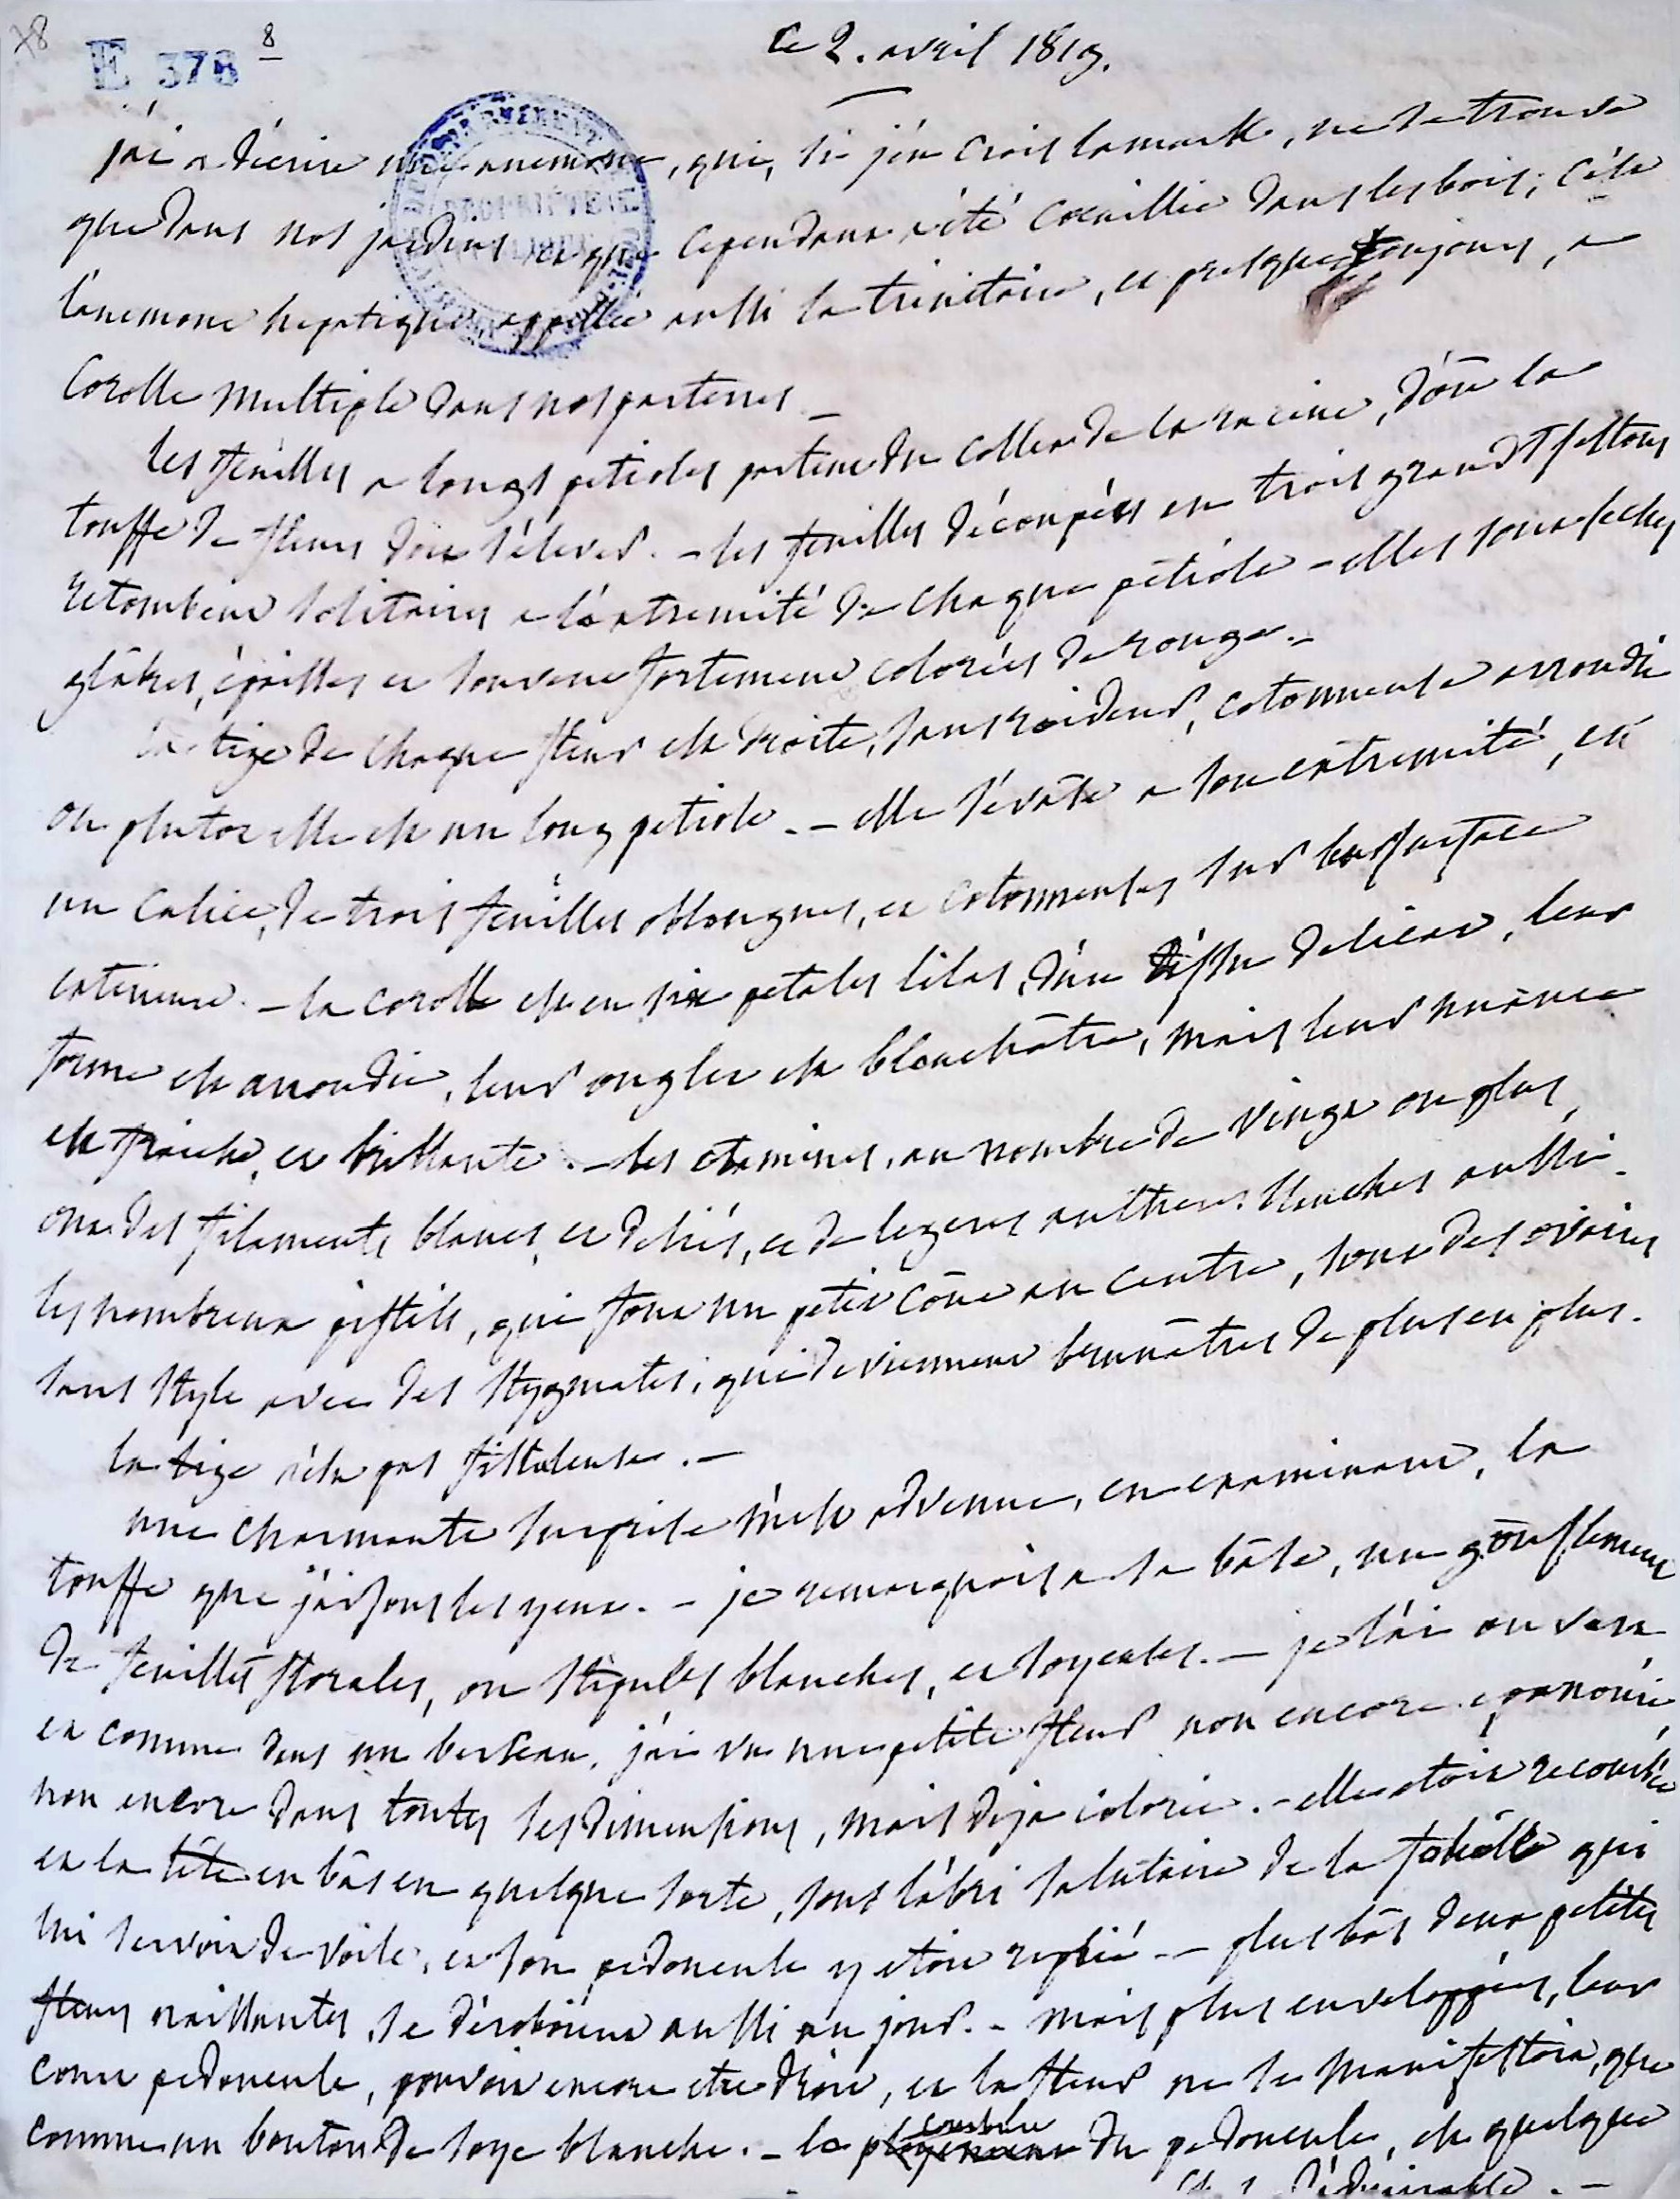 78
E 378 8
Ce 2. avril 1819.
j'ai a décrire une anemone, qui, si j'en crois lamark, ne se trouve
que dans nos jardins et qui cependant a été cueillie dans les bois; c'est
l'anemone hepatique, appellée aussi la trinitaire, et presque toujours, a
Corolle multiple dans nos parterres _
les feuilles a longs petioles partent du collet de la racine, d'où la
touffe de fleurs doit s'élever. - les feuilles découpées en trois grands festons
retombent solitaires a l'extremité de chaque pétiole - elles sont seches
glâbres, épaisses et souvent fortement colorées de rouge. -
la tige de chaque fleur est droite, sans roideur, cotonneuse arrondie
ou plutot elle est un long petiole. - elle s'évâse a son extremité, en
un calice, de trois feuilles oblongues, et cotonneuses sur leur surface
exterieure. - la corolle est en six petales lilas, d'un tissu delicat, leur
forme est arrondie, leur onglet est blanchâtre, mais leur nuance
est fraiche, et brillante. - les etamines, au nombre de vingt ou plus,
ont des filaments blancs, et deliés, et de legeres antheres blanches aussi -
les nombreux pistils, qui font un petit cône au centre, sont des ovaires
sans style avec des stygmates, qui deviennent brunâtres de plus en plus.
la tige n'est pas fistuleuse. -
une charmante surprise m'est advenue, en examinant, la
touffe que j'ai sous les yeux. - je remarquois a sa bâse, un gonflement
de feuilles florales, ou stipules blanches, et soyeuses. - je l'ai ouvert
et comme dans un berceau, j'ai vu une petite fleur non encore epanouie,
non encore dans toutes ses dimensions, mais deja colorée. - elle etoit recourbée
et la tête en bâs en quelque sorte, sous l'abri salutaire de la foliole qui
lui servoit de voile, et son pedoncule y etoit replié - plus bâs deux petites
fleurs naissantes, se déroboient aussi au jour. - mais plus enveloppées, leur
court pedoncule, pouvoit encore etre droit, et la fleur ne se manifestoit, que
comme un bouton de soye blanche. - la courbure du pedoncule, est quelque
d'admirable. -